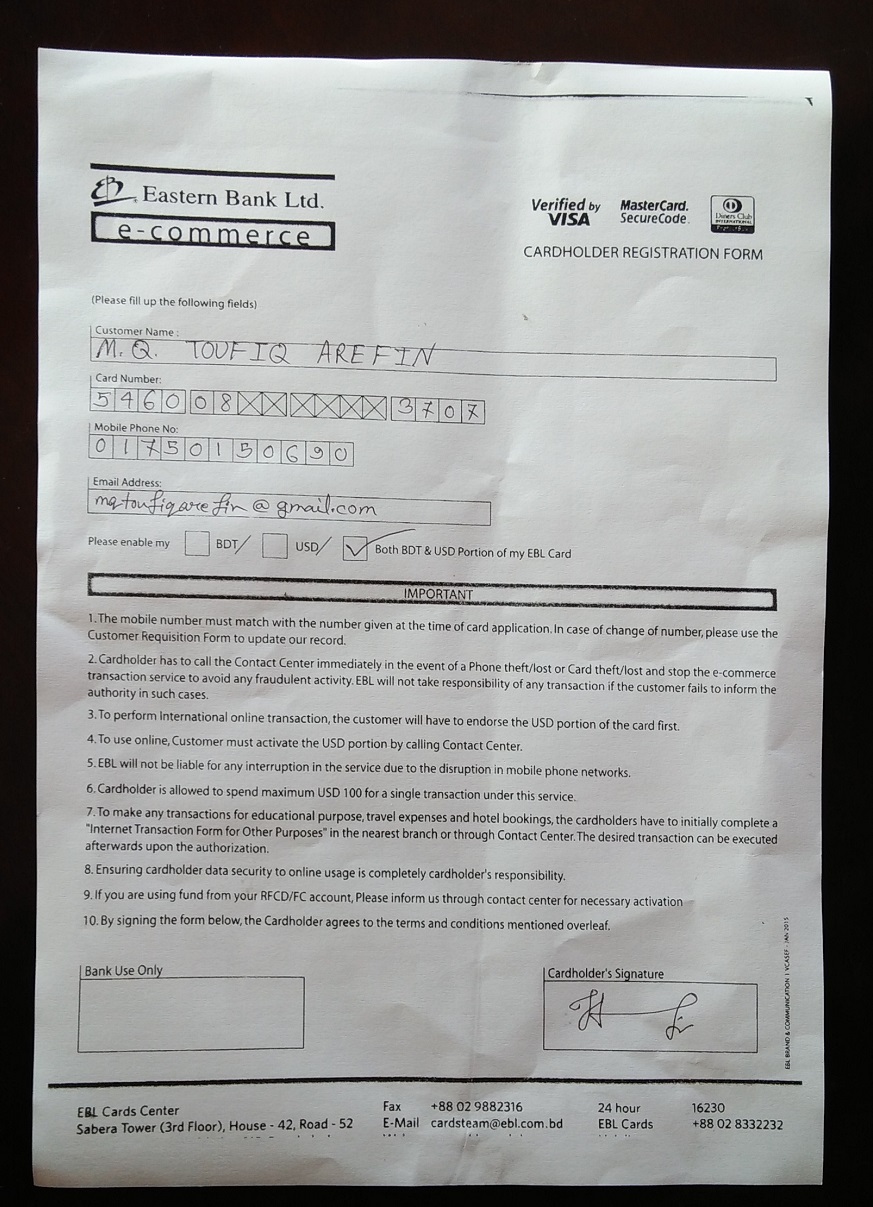 Eastern Bank Ltd.
e-commerce
Verified by VISA
MasterCard. SecureCode.
Diners Club INTERNATIONAL
CARDHOLDER REGISTRATION FORM
(Please fill up the following fields)
Customer Name :
M. Q. TOUFIQ AREFIN
Card Number:
5460 08XX XXXX 3707
Mobile Phone No:
01750150690
Email Address:
mqtoufiqarefin@gmail.com
Please enable my BDT/ USD/ Both BDT & USD Portion of my EBL Card
IMPORTANT
1. The mobile number must match with the number given at the time of card application. In case of change of number, please use the
Customer Requisition Form to update our record.
2. Cardholder has to call the Contact Center immediately in the event of a Phone theft/lost or Card theft/lost and stop the e-commerce
transaction service to avoid any fraudulent activity. EBL will not take responsibility of any transaction if the customer fails to inform the
authority in such cases.
3. To perform International online transaction, the customer will have to endorse the USD portion of the card first.
4. To use online, Customer must activate the USD portion by calling Contact Center.
5. EBL will not be liable for any interruption in the service due to the disruption in mobile phone networks.
6. Cardholder is allowed to spend maximum USD 100 for a single transaction under this service.
7. To make any transactions for educational purpose, travel expenses and hotel bookings, the cardholders have to initially complete a
"Internet Transaction Form for Other Purposes" in the nearest branch or through Contact Center. The desired transaction can be executed
afterwards upon the authorization.
8. Ensuring cardholder data security to online usage is completely cardholder's responsibility.
9. If you are using fund from your RFCD/FC account, Please inform us through contact center for necessary activation
10. By signing the form below, the Cardholder agrees to the terms and conditions mentioned overleaf.
EBL BRAND & COMMUNICATION I VCASEF - JAN 2015
Bank Use Only
Cardholder's Signature
EBL Cards Center
Sabera Tower (3rd Floor), House - 42, Road - 52
Fax +88 02 9882316
E-Mail cardsteam@ebl.com.bd
24 hour 16230
EBL Cards +88 02 8332232